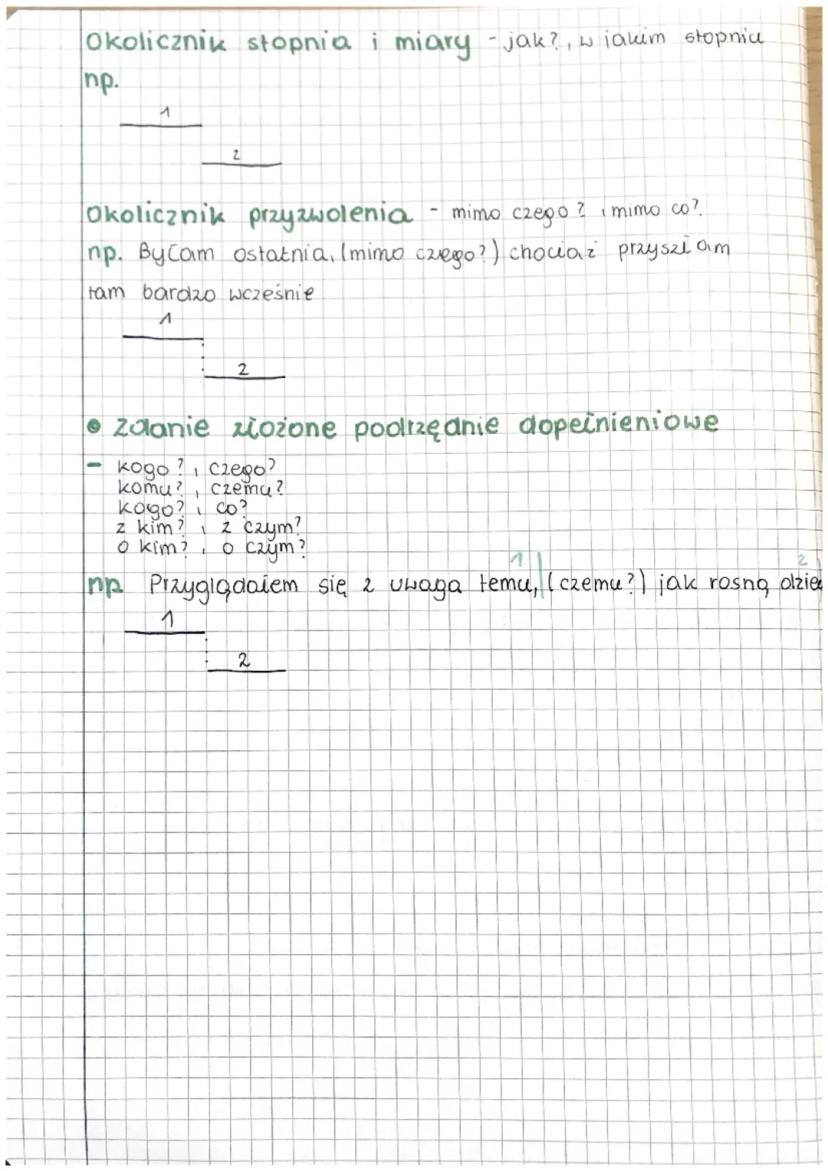 Okolicznik stopnia i miary - jak?, w jakim stopniu
np.
1
2
Okolicznik przyzwolenia - mimo czego?, mimo co?
np. Byłam ostatnia, (mimo czego?) chociaż przyszłam
tam bardzo wcześnie
1
2
• zdanie złożone podrzędnie dopełnieniowe
- kogo?, czego?
komu?, czemu?
kogo?, co?
z kim?, z czym?
o kim?, o czym?
1 2
np. Przyglądałem się z uwaga temu, (czemu?) jak rosną
1
2